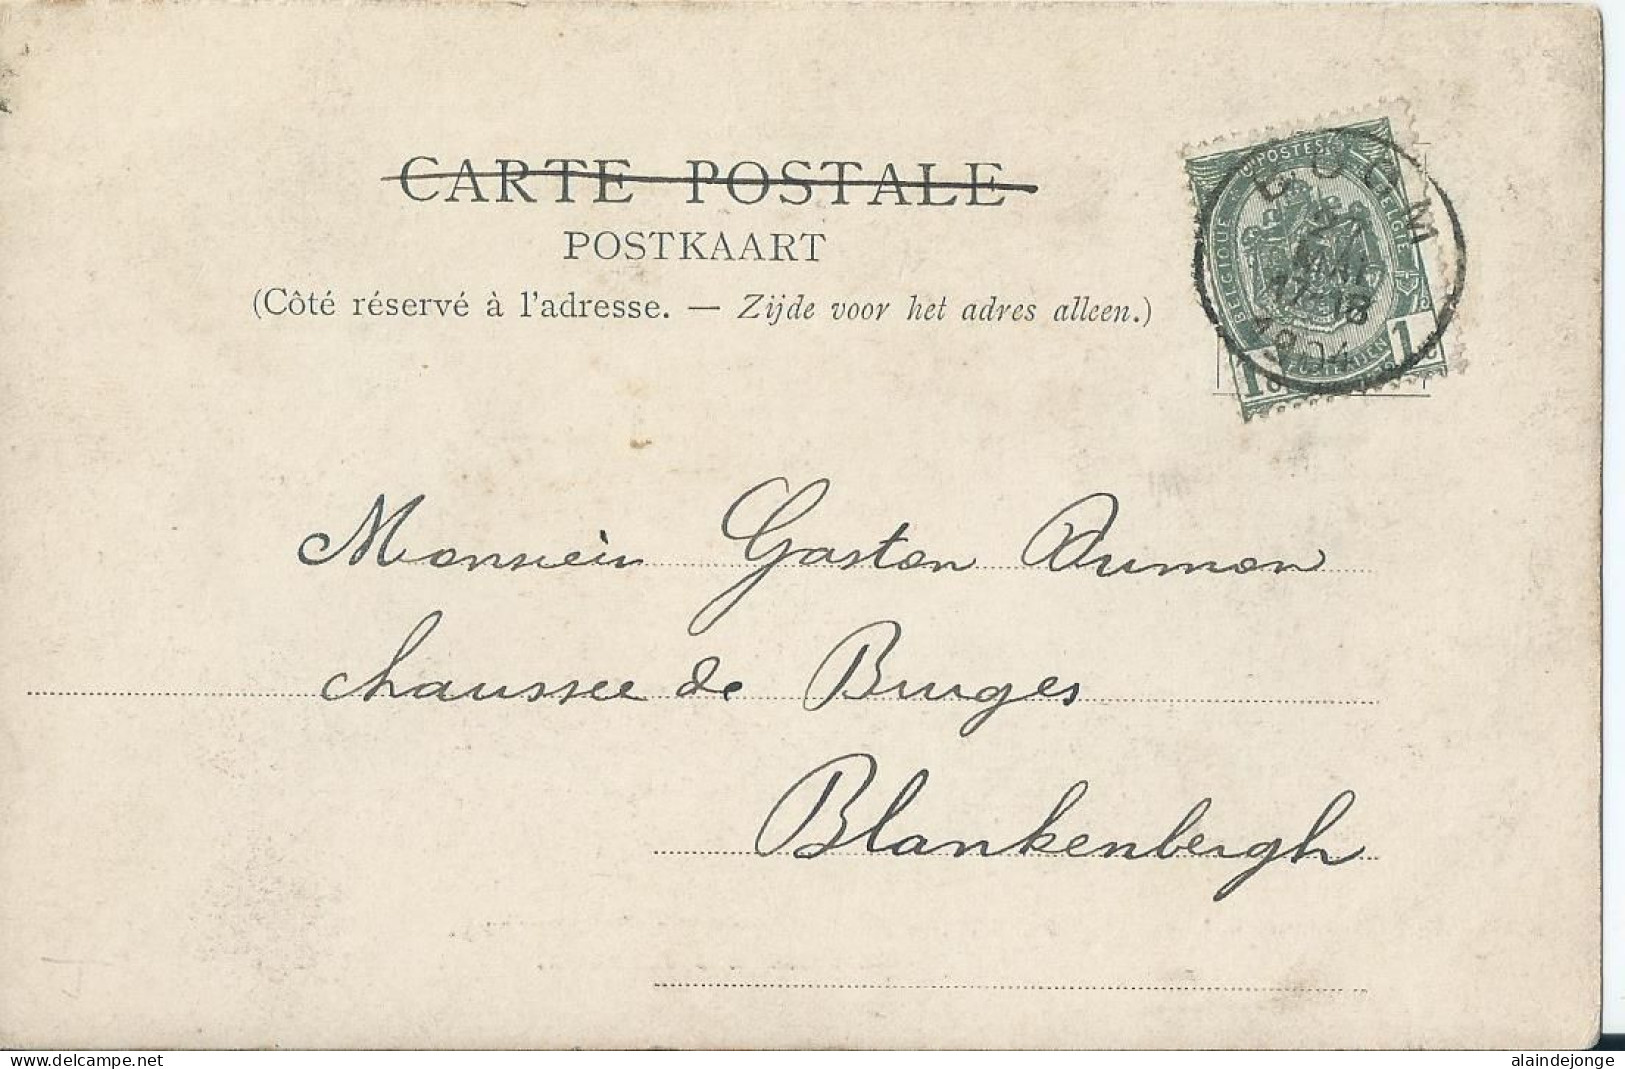 CARTE POSTALE
POSTKAART
(Côté réservé à l'adresse. — Zijde voor het adres alleen.)
POSTES
BELGIQUE
BELGIE
1c
1c
BOOM
MAI
17-18
1904
Monsieur Gaston Dumon
chaussee de Bruges
Blankenbergh
delcampe.net
alaindejonge